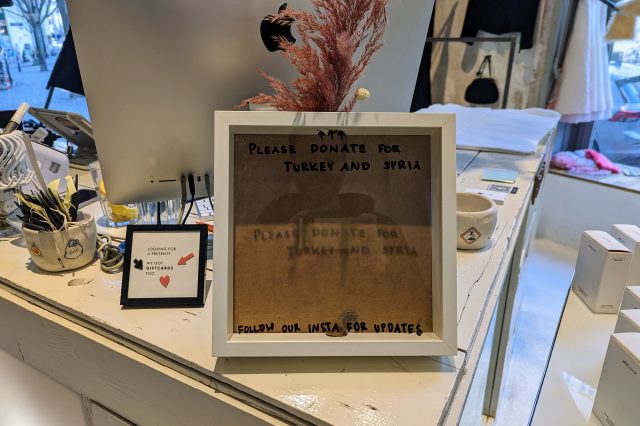 PLEASE DONATE FOR
TURKEY AND SYRIA
PLEASE DONATE FOR
TURKEY AND SYRIA
FOLLOW OUR INSTA FOR UPDATES
LOOKING FOR
A PRESENTS
WE GOT
GIFTCARDS
TOO